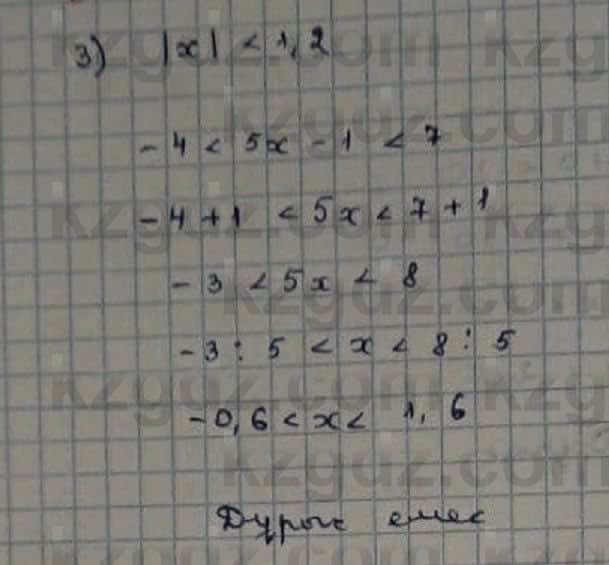 3) |x| < 1,2
-4 < 5x - 1 < 7
-4 + 1 < 5x < 7 + 1
-3 < 5x < 8
-3 : 5 < x < 8 : 5
-0,6 < x < 1,6
Дұрыс емес